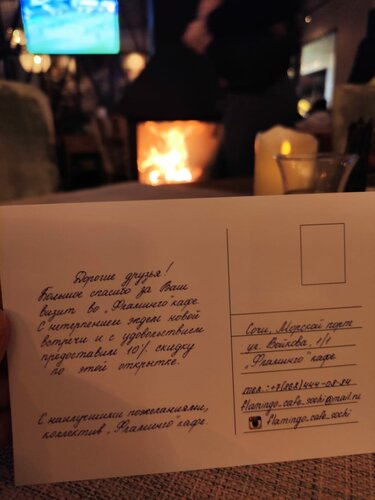 Дорогие друзья!
Большое спасибо за Ваш
визит во „Фламинго" кафе.
С нетерпением ждем новой
встречи и с удовольствием
предоставим 10% скидку
по этой открытке.
С наилучшими пожеланиями,
коллектив „Фламинго" кафе.
Сочи, Морской порт
ул. Войкова, 1/1
„Фламинго" кафе
тел.: +7(988)444-08-84
flamingo_cafe_sochi@mail.ru
flamingo_cafe_sochi